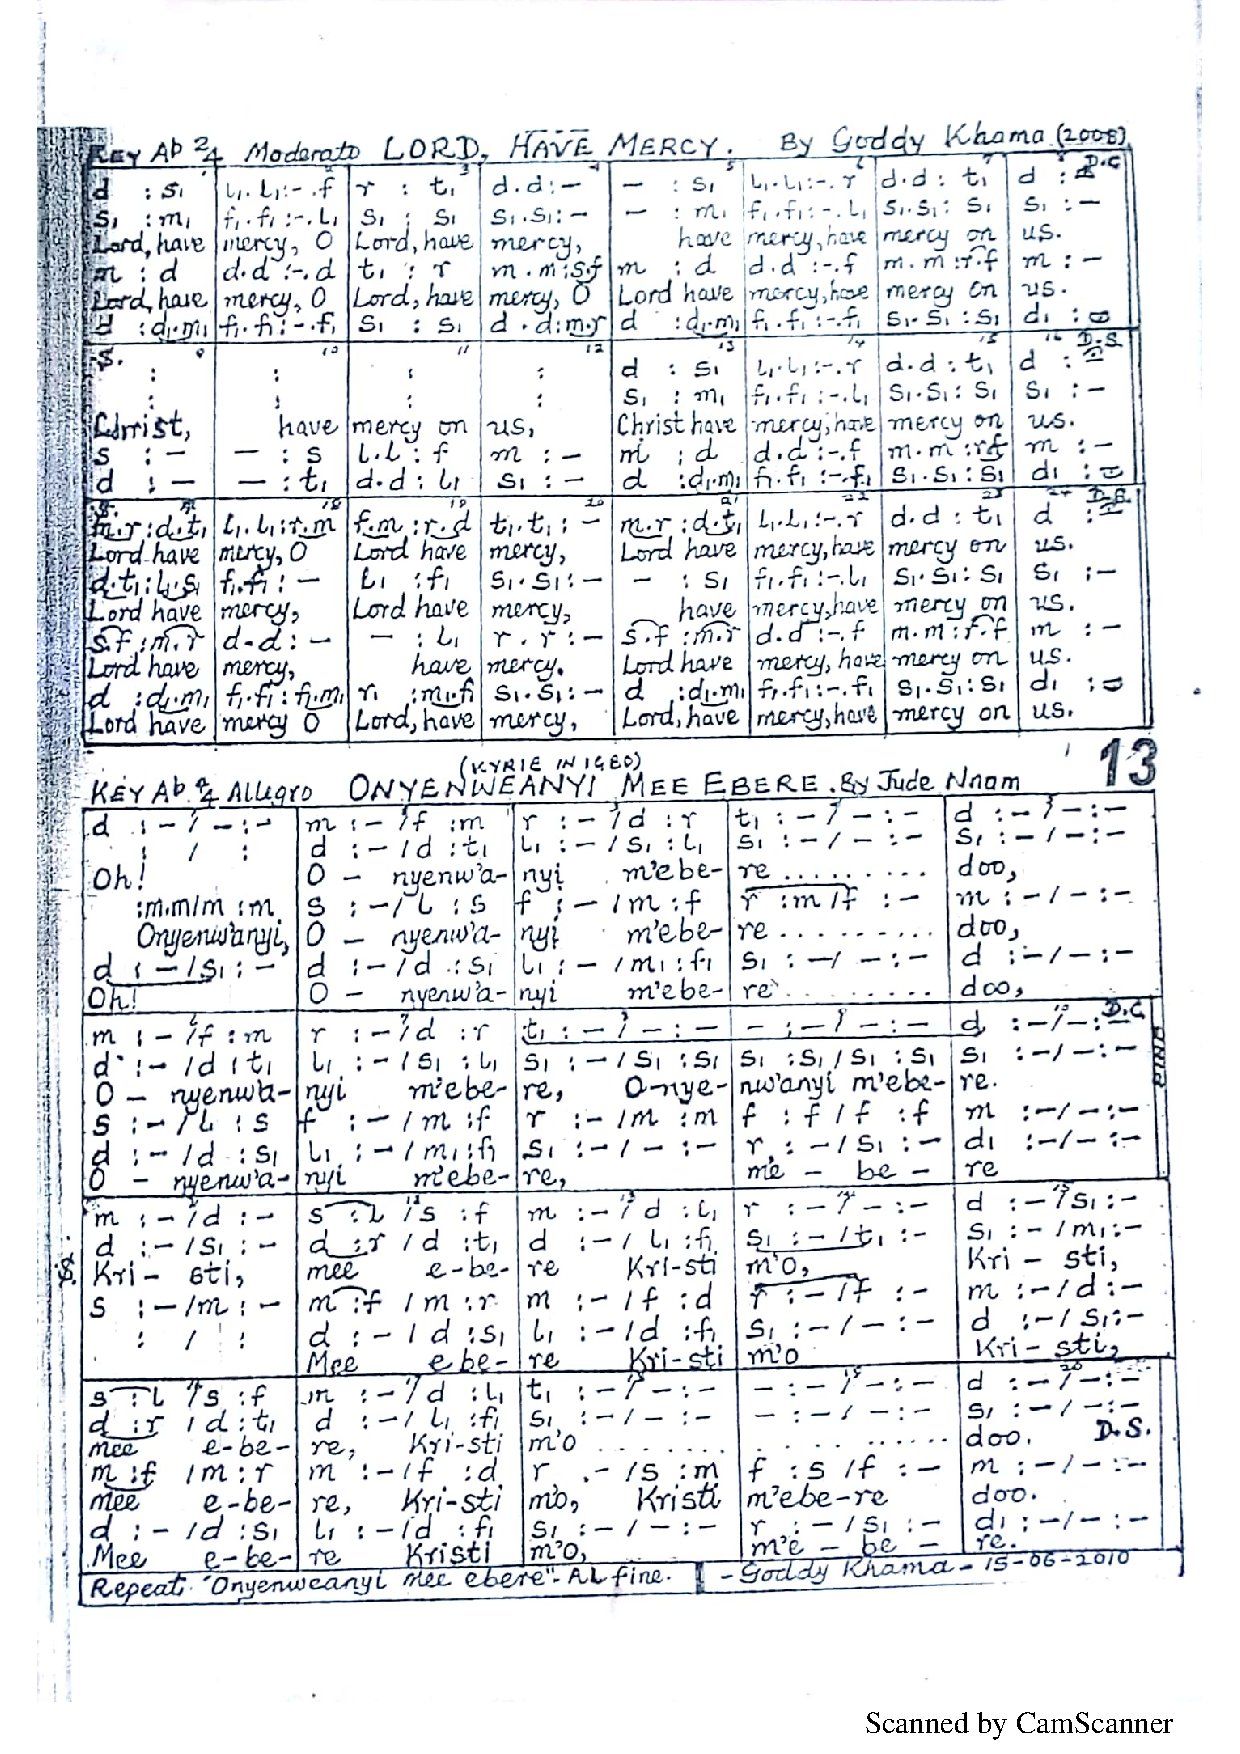 KEY Ab 2/4 Moderato LORD, HAVE MERCY. By Goddy Khama (2008)
1 2 3 4 5 6 7 8 D.C
d : s₁ | l₁.l₁:-.f | r : t₁ | d.d:- | - : s₁ | l₁.l₁:-.r | d.d : t₁ | d : -
s₁ : m₁ | f₁.f₁:-.l₁ | s₁ : s₁ | s₁.s₁:- | - : m₁ | f₁.f₁:-.l₁ | s₁.s₁: s₁ | s₁ : -
Lord, have | mercy, O | Lord, have | mercy, | have | mercy, have | mercy on | us.
m : d | d.d :-.d | t₁ : r | m.m:s.f | m : d | d.d :-.f | m.m:r.f | m : -
Lord, have | mercy, O | Lord, have | mercy, O | Lord have | mercy, have | mercy on | us.
d :d₁.m₁ | f₁.f₁:-.f₁ | s₁ : s₁ | d.d:m.r | d :d₁.m₁ | f₁.f₁:-.f₁ | s₁.s₁ : s₁ | d₁ : -
S. 9 10 11 12 13 14 15 16 D.S.
: | : | : | : | d : s₁ | l₁.l₁:-.r | d.d : t₁ | d : -
: | : | : | : | s₁ : m₁ | f₁.f₁:-.l₁ | s₁.s₁: s₁ | s₁ : -
Christ, | have | mercy on | us, | Christ have | mercy, have | mercy on | us.
s : - | - : s | l.l : f | m : - | m : d | d.d :-.f | m.m :r.f | m : -
d : - | - : t₁ | d.d : l₁ | s₁ : - | d :d₁.m₁ | f₁.f₁:-.f₁ | s₁.s₁ : s₁ | d₁ : -
S. 18 19 20 21 22 23 24 D.S.
m.r :d.t₁ | l₁.l₁:r.m | f.m :r.d | t₁.t₁ : - | m.r :d.t₁ | l₁.l₁:-.r | d.d : t₁ | d : -
Lord have | mercy, O | Lord have | mercy, | Lord have | mercy, have | mercy on | us.
d.t₁:l₁.s₁ | f₁.f₁ : - | l₁ : f₁ | s₁.s₁ : - | - : s₁ | f₁.f₁ :-.l₁ | s₁.s₁: s₁ | s₁ : -
Lord have | mercy, | Lord have | mercy, | have | mercy, have | mercy on | us.
s.f :m.r | d.d : - | - : l₁ | r.r : - | s.f :m.r | d.d :-.f | m.m :r.f | m : -
Lord have | mercy, | have | mercy. | Lord have | mercy, have | mercy on | us.
d :d₁.m₁ | f₁.f₁ : f₁.m₁ | r₁ :m₁.f₁ | s₁.s₁: - | d :d₁.m₁ | f₁.f₁ :-.f₁ | s₁.s₁:s₁ | d₁ : -
Lord have | mercy O | Lord, have | mercy, | Lord, have | mercy, have | mercy on | us.
13
(KYRIE IN IGBO)
KEY Ab 2/4 Allegro ONYENWEANYI MEE EBERE. By Jude Nnam
d : - / - : - | m : - / f : m | r : - / d : r | t₁ : - / - : - | d : - / - : -
: / : | d : - / d : t₁ | l₁ : - / s₁ : l₁ | s₁ : - / - : - | s₁ : - / - : -
Oh! | O - nyenw'a- | nyi m'ebe- | re .......... | doo,
:m.m/m :m | s : - / l : s | f : - / m : f | r : m / f : - | m : - / - : -
Onyenw'anyi, | O - nyenw'a- | nyi m'ebe- | re .......... | doo,
d : - / s₁ : - | d : - / d : s₁ | l₁ : - / m₁ : f₁ | s₁ : - / - : - | d : - / - : -
Oh! | O - nyenw'a- | nyi m'ebe- | re .......... | doo,
6 7 8 9 10 D.C
m : - / f : m | r : - / d : r | t₁ : - / - : - | - : - / - : - | d : - / - : -
d : - / d : t₁ | l₁ : - / s₁ : l₁ | s₁ : - / s₁ : s₁ | s₁ : s₁ / s₁ : s₁ | s₁ : - / - : -
O - nyenw'a- | nyi m'ebe- | re, O-nye- | nw'anyi m'ebe- | re.
s : - / l : s | f : - / m : f | r : - / m : m | f : f / f : f | m : - / - : -
d : - / d : s₁ | l₁ : - / m₁ : f₁ | s₁ : - / - : - | r : - / s₁ : - | d₁ : - / - : -
O - nyenw'a- | nyi m'ebe- | re, | me - be - | re
FINE
m : - / d : - | s : l / s : f | m : - / d : l₁ | r : - / - : - | d : - / s₁ : -
d : - / s₁ : - | d : r / d : t₁ | d : - / l₁ : f₁ | s₁ : - / t₁ : - | s₁ : - / m₁ : -
S. Kri - sti, | mee e-be- | re Kri-sti | m'o, | Kri - sti,
s : - / m : - | m : f / m : r | m : - / f : d | r : - / f : - | m : - / d : -
: / : | d : - / d : s₁ | l₁ : - / d : f₁ | s₁ : - / - : - | d : - / s₁ : -
Mee ebe- | re Kri-sti | m'o | Kri - sti,
s : l / s : f | m : - / d : l₁ | t₁ : - / - : - | - : - / - : - | d : - / - : -
d : r / d : t₁ | d : - / l₁ : f₁ | s₁ : - / - : - | - : - / - : - | s₁ : - / - : -
mee e-be- | re, Kri-sti | m'o .......... | .......... | doo. D.S.
m : f / m : r | m : - / f : d | r : - / s : m | f : s / f : - | m : - / - : -
mee e-be- | re, Kri-sti | m'o, Kristi | m'ebe-re | doo.
d : - / d : s₁ | l₁ : - / d : f₁ | s₁ : - / - : - | r : - / s₁ : - | d₁ : - / - : -
Mee e-be- | re Kristi | m'o, | m'e - be - | re.
Repeat "Onyenweanyi mee ebere" - AL fine. - Goddy Khama - 15-06-2010
Scanned by CamScanner